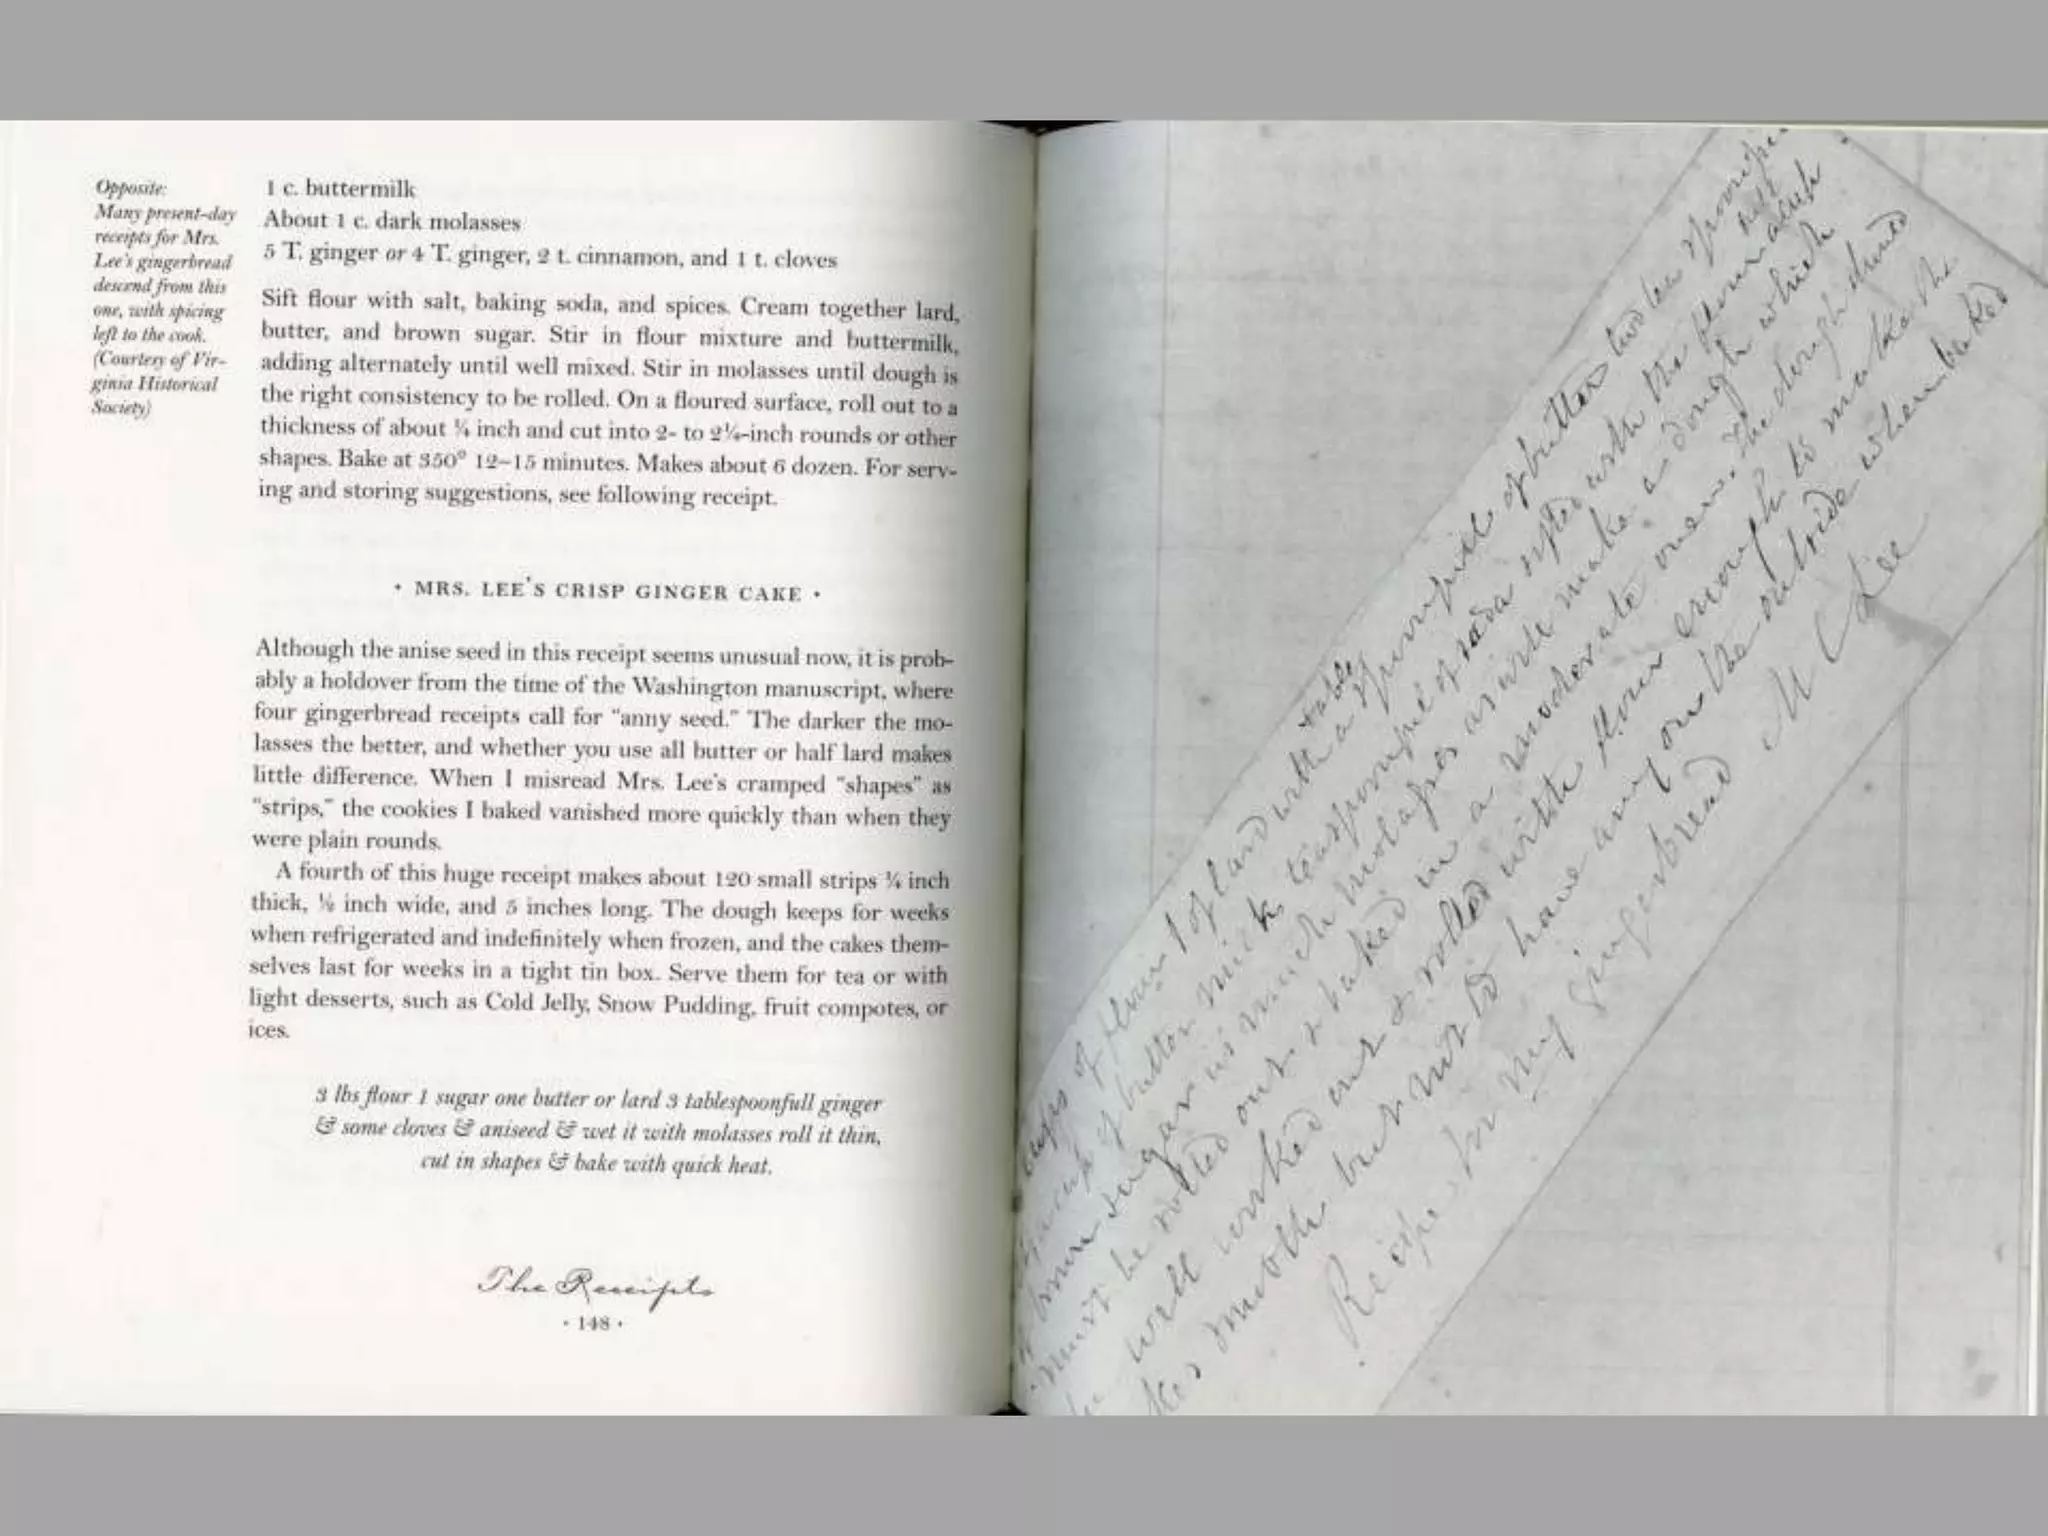 Opposite:
Many present-day
receipts for Mrs.
Lee's gingerbread
descend from this
one, with spicing
left to the cook.
(Courtesy of Vir-
ginia Historical
Society)
1 c. buttermilk
About 1 c. dark molasses
5 T. ginger or 4 T. ginger, 2 t. cinnamon, and 1 t. cloves
Sift flour with salt, baking soda, and spices. Cream together lard,
butter, and brown sugar. Stir in flour mixture and buttermilk,
adding alternately until well mixed. Stir in molasses until dough is
the right consistency to be rolled. On a floured surface, roll out to a
thickness of about ¼ inch and cut into 2- to 2¼-inch rounds or other
shapes. Bake at 350° 12–15 minutes. Makes about 6 dozen. For serv-
ing and storing suggestions, see following receipt.
• MRS. LEE'S CRISP GINGER CAKE •
Although the anise seed in this receipt seems unusual now, it is prob-
ably a holdover from the time of the Washington manuscript, where
four gingerbread receipts call for "anny seed." The darker the mo-
lasses the better, and whether you use all butter or half lard makes
little difference. When I misread Mrs. Lee's cramped "shapes" as
"strips," the cookies I baked vanished more quickly than when they
were plain rounds.
A fourth of this huge receipt makes about 120 small strips ¼ inch
thick, ½ inch wide, and 5 inches long. The dough keeps for weeks
when refrigerated and indefinitely when frozen, and the cakes them-
selves last for weeks in a tight tin box. Serve them for tea or with
light desserts, such as Cold Jelly, Snow Pudding, fruit compotes, or
ices.
3 lbs flour 1 sugar one butter or lard 3 tablespoonfull ginger
& some cloves & aniseed & wet it with molasses roll it thin,
cut in shapes & bake with quick heat.
The Receipts
• 148 •
table
cups of flour 1 of lard with a spoonful of butter two tea
cup of butter milk teaspoonful of soda sifted with the flour
brown sugar as much molasses as will make a dough which
must be rolled out & baked in a moderate oven. The dough
well worked out & rolled with flour enough to make the
smooth but not to have any on the outside when baked
Recipe for my gingerbread M C Lee